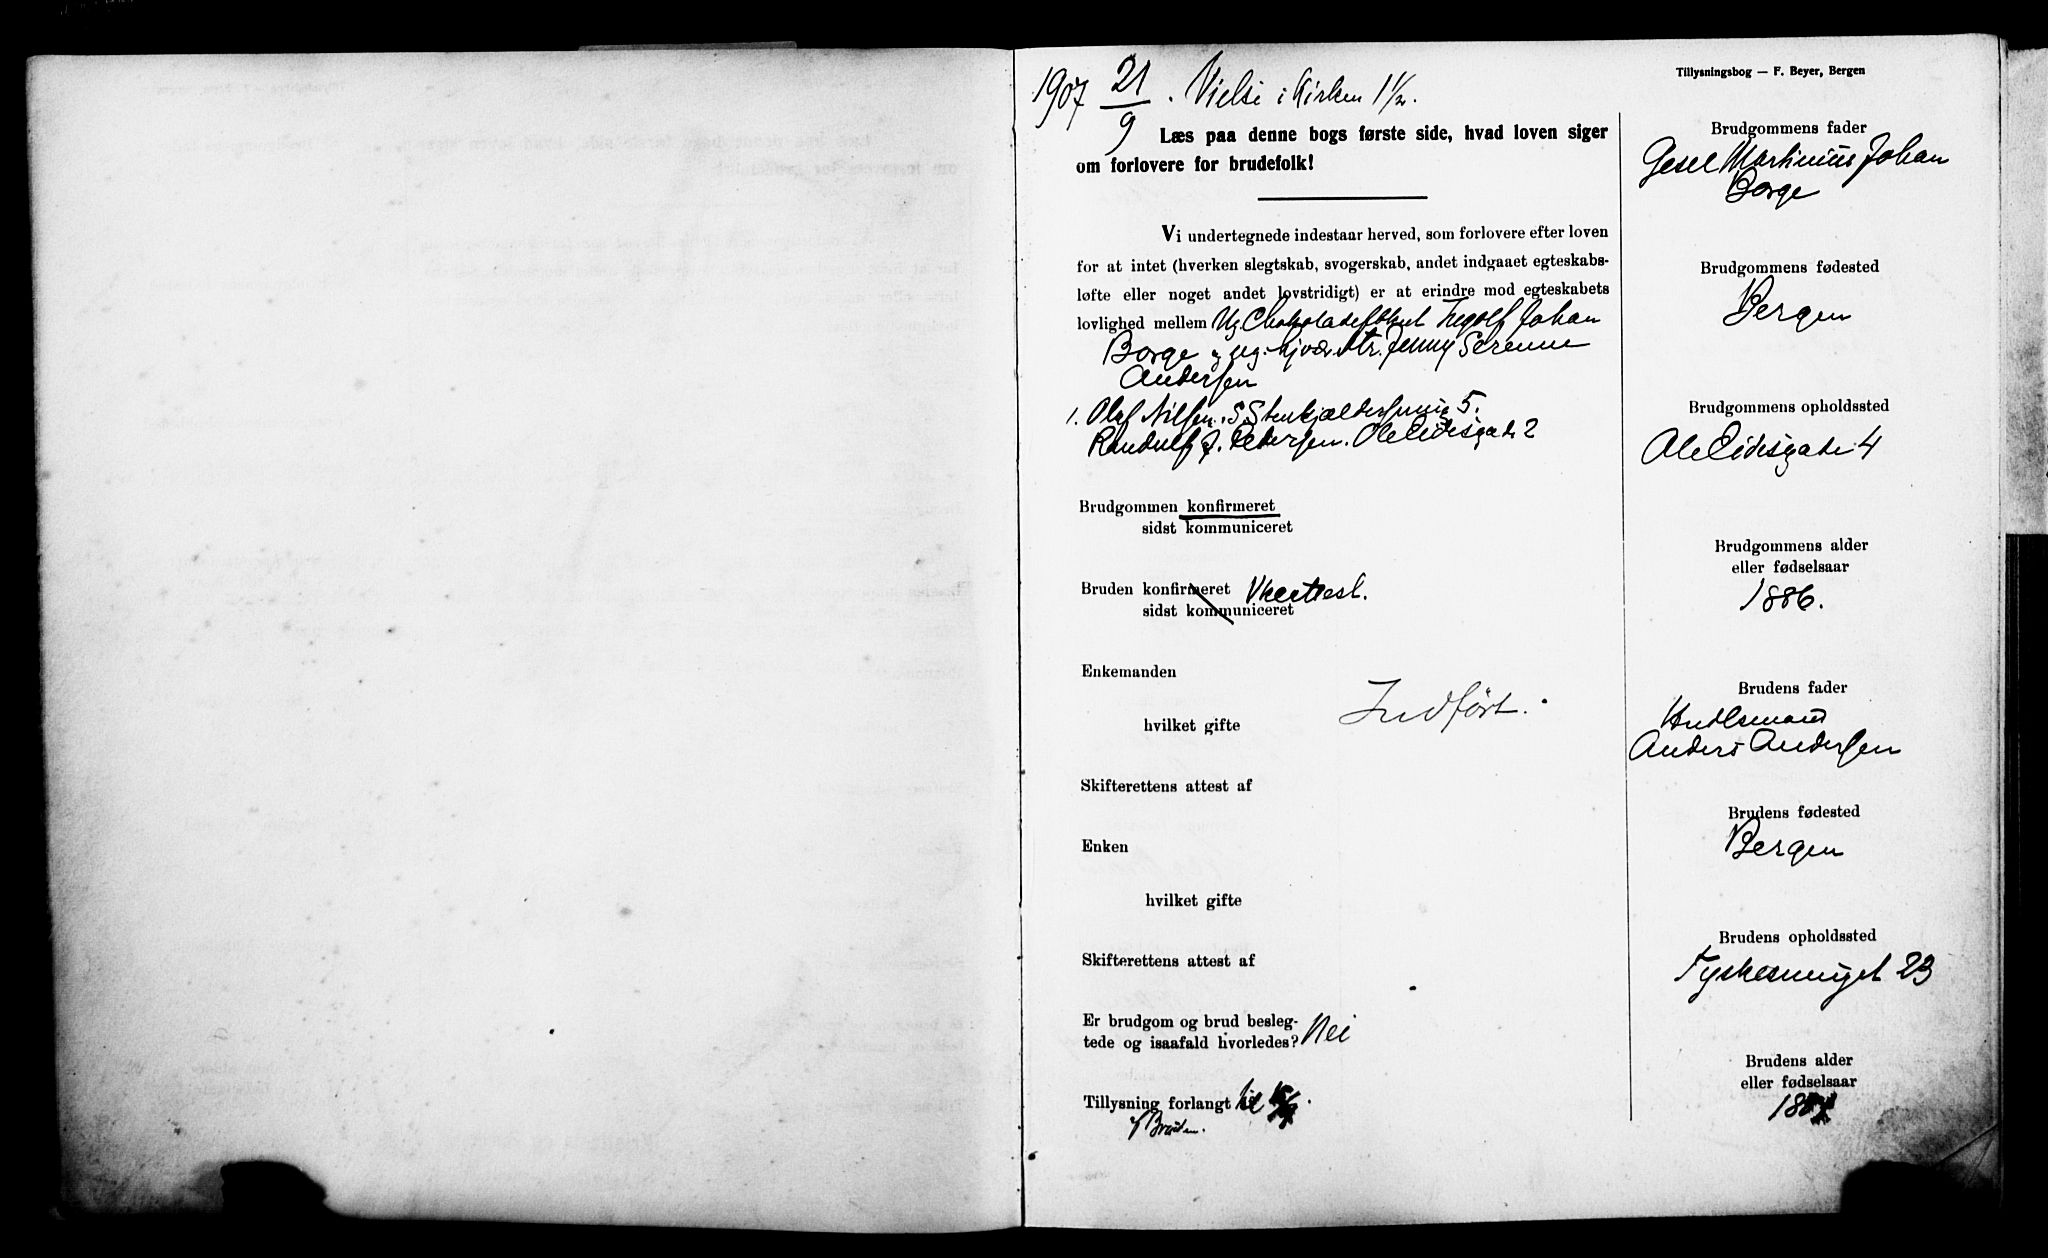 1907 21/9. Vielse i Kirken 1 1/2.
Tillysningsbog — F. Beyer, Bergen
Læs paa denne bogs første side, hvad loven siger
om forlovere for brudefolk!
Vi undertegnede indestaar herved, som forlovere efter loven
for at intet (hverken slegtskab, svogerskab, andet indgaaet egteskabs-
løfte eller noget andet lovstridigt) er at erindre mod egteskabets
lovlighed mellem Ug. Ingolf Johan
Borge og Jenny Serenne
Andersen
1. Olaf Nilsen. 5.
Randulf J. Pedersen. Ole Eidesgade 2
Brudgommen konfirmeret
sidst kommuniceret
Bruden konfirmeret
sidst kommuniceret
Enkemanden
Indført.
hvilket gifte
Skifterettens attest af
Enken
hvilket gifte
Skifterettens attest af
Er brudgom og brud besleg-
tede og isaafald hvorledes? Nei
Tillysning forlangt til
af Bruden.
Brudgommens fader
Martinius Johan
Borge
Brudgommens fødested
Bergen
Brudgommens opholdssted
Ole Eidesgade 4
Brudgommens alder
eller fødselsaar
1886.
Brudens fader
Anders Andersen
Brudens fødested
Bergen
Brudens opholdssted
Tyskesmuget 23
Brudens alder
eller fødselsaar